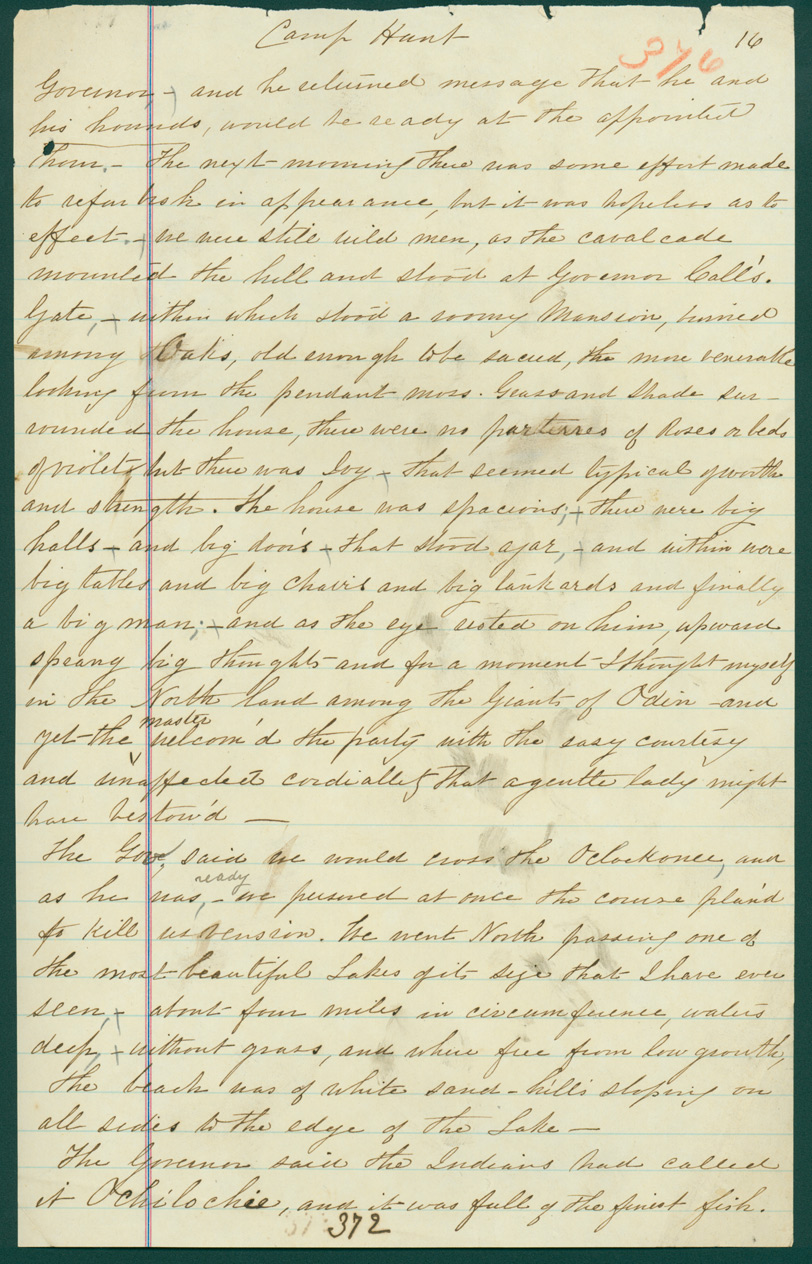 Camp Hunt 16
376
Governor, - and he returned message that he and
his hounds, would be ready at the appointed
hour. - The next morning there was some effort made
to refurbish in appearance, but it was hopeless as to
effect. - we were still wild men, as the cavalcade
mounted the hill and stood at Governor Call's.
Gate, - within which stood a roomy Mansion, buried
among Oaks, old enough to be sacred, the more venerable
looking from the pendant moss. Grass and shade sur-
rounded the house, there were no parterres of Roses or beds
of violets but there was Ivy - that seemed typical of worth
and strength. The house was spacious, - there were big
halls - and big doors - that stood ajar, - and within were
big tables and big chairs and big tankards and finally
a big man; - and as the eye rested on him, upward
sprang big thoughts and for a moment I thought myself
in the North land among the Giants of Odin - and
yet the master welcom'd the party with the easy courtesy
and unaffected cordiallity that a gentle lady might
have bestow'd —
The Gov, said we would cross the Oclockonee, and
as he was, ready - we pursued at once the course plan'd
to kill us venison. We went North passing one of
the most beautiful Lakes of its size that I have ever
seen, - about four miles in circumference, waters
deep, - without grass, and where free from low growth,
the beach was of white sand - hills sloping on
all sides to the edge of the Lake —
The Governor said the Indians had called
it Ochilochee, and it was full of the finest fish.
372